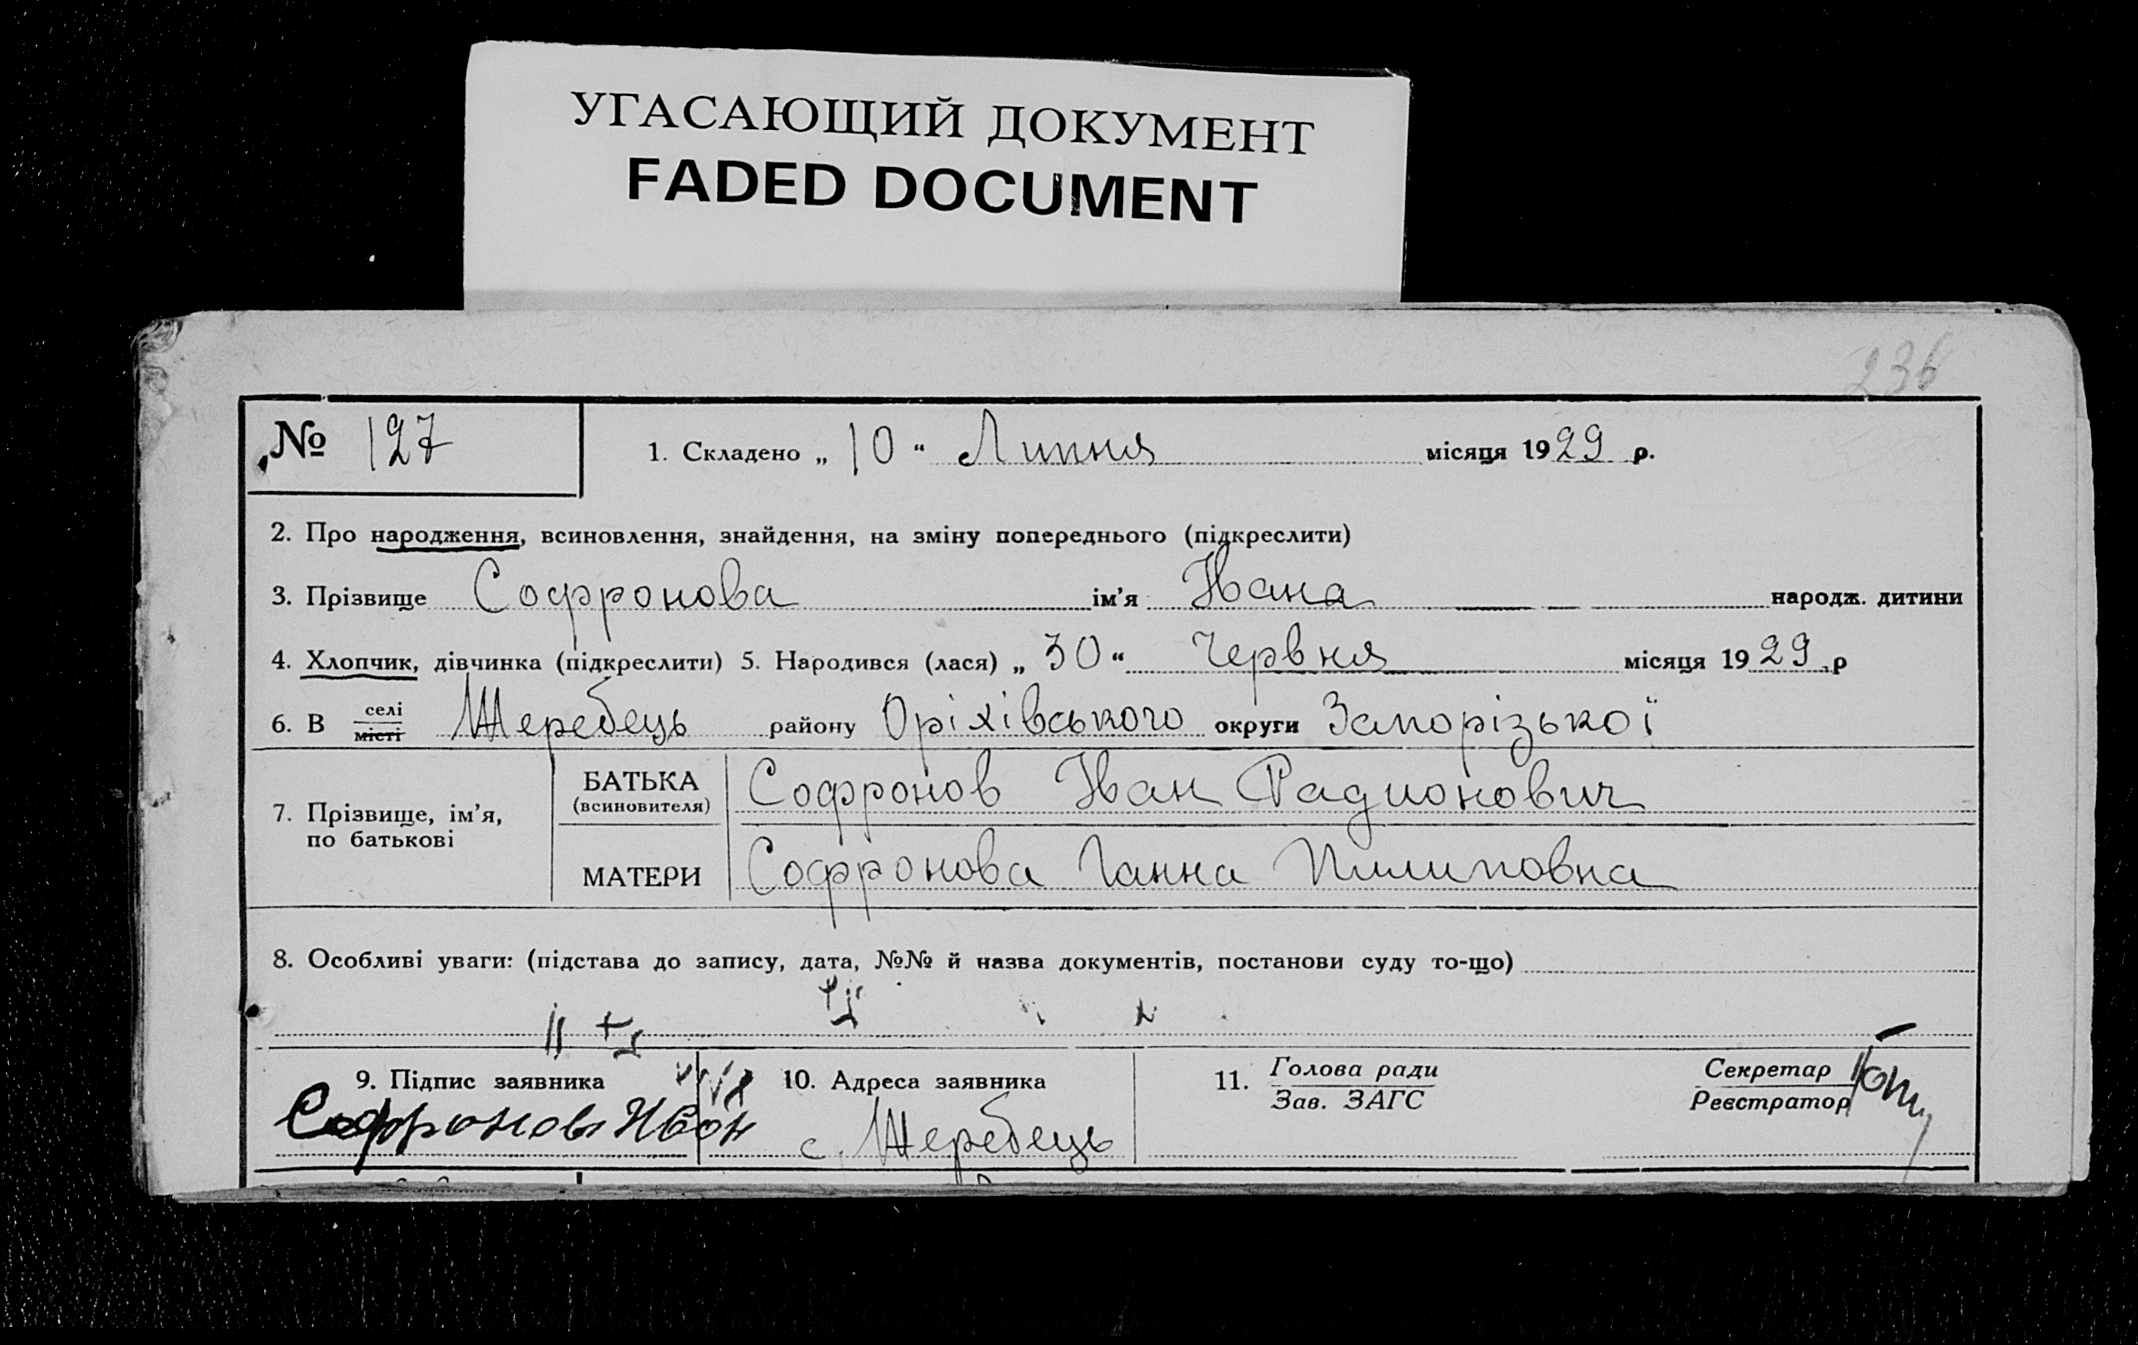 УГАСАЮЩИЙ ДОКУМЕНТ
FADED DOCUMENT
236
№ 127
1. Складено „ 10 “ Липня місяця 1929 р.
2. Про народження, всиновлення, знайдення, на зміну попереднього (підкреслити)
3. Прізвище Софронова ім'я Івана народж. дитини
4. Хлопчик, дівчинка (підкреслити) 5. Народився (лася) „ 30 “ Червня місяця 1929 р
6. В селі місті Жеребець району Оріхівського округи Запорізької
7. Прізвище, ім'я, по батькові
БАТЬКА (всиновителя) Софронов Іван Радионович
МАТЕРИ Софронова Ганна Пилиповна
8. Особливі уваги: (підстава до запису, дата, №№ й назва документів, постанови суду то-що)
9. Підпис заявника
Софронов Иван
10. Адреса заявника
с. Жеребець
11. Голова ради
Зав. ЗАГС
Секретар
Реєстратор